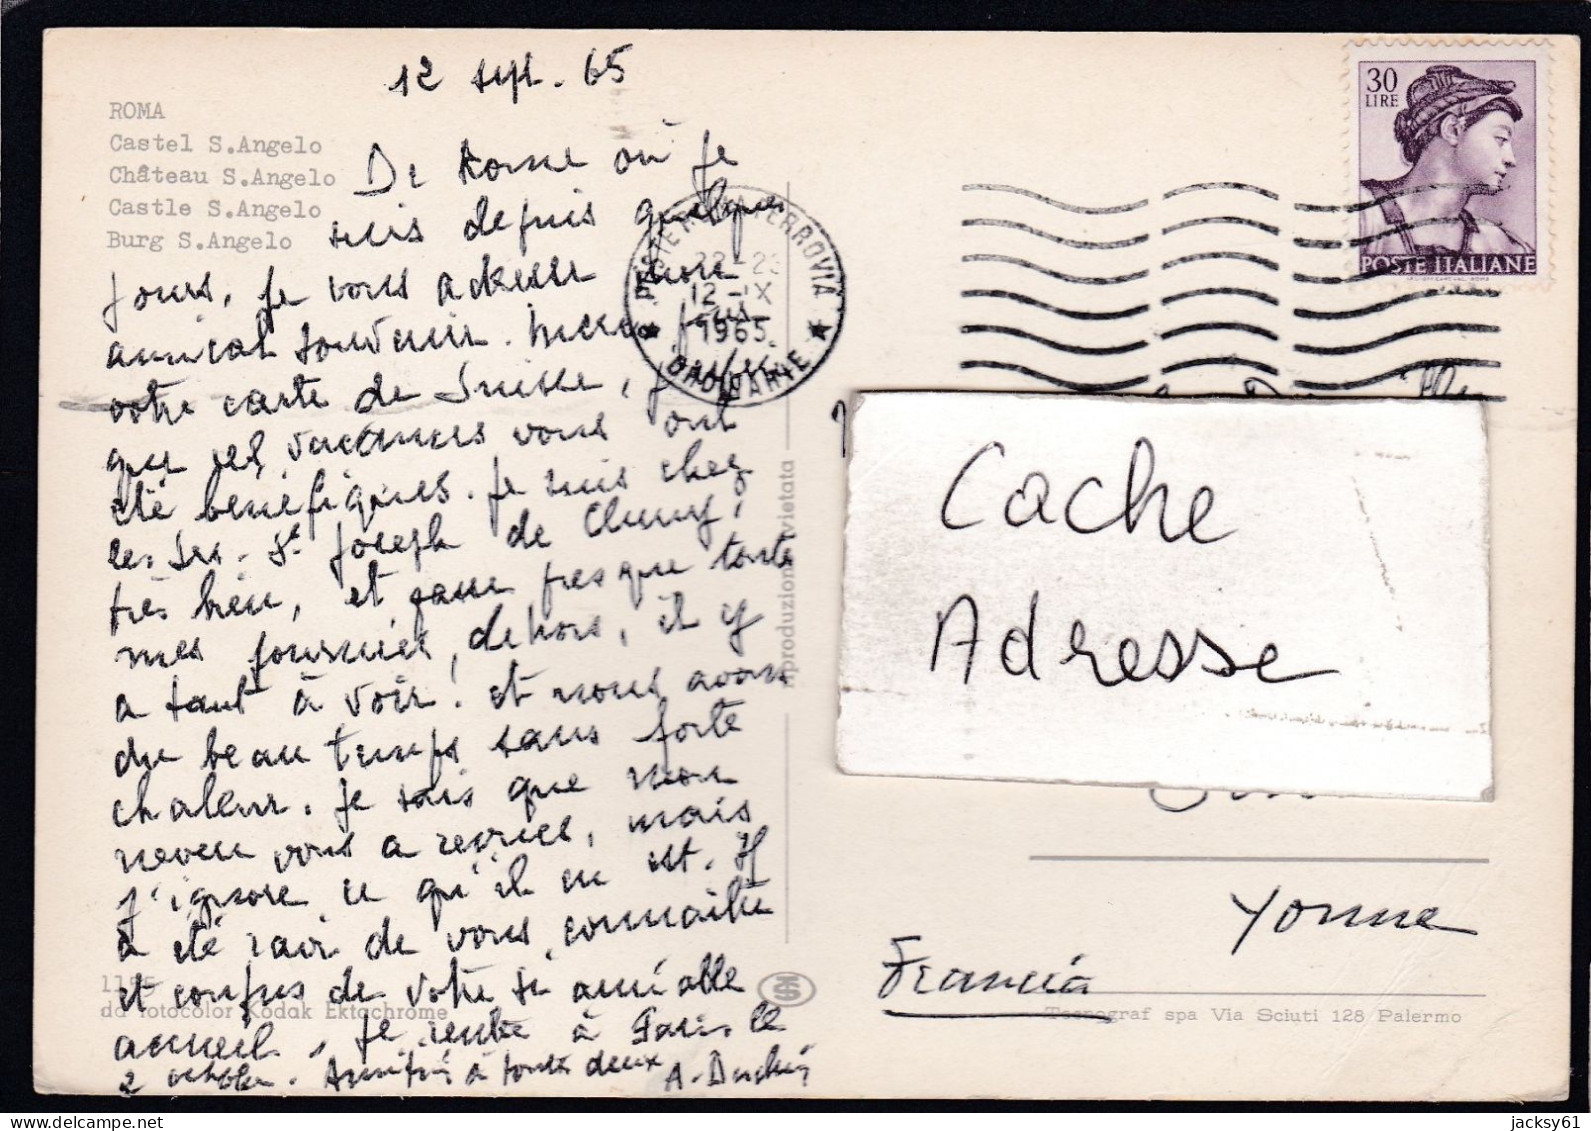 12 sept. 65
ROMA
Castel S.Angelo
Château S.Angelo
Castle S.Angelo
Burg S.Angelo
De Rome où je
suis depuis quelques
jours, je vous adresse mon
amical souvenir. Merci pour
votre carte de Suisse, j'espère
que ces vacances vous ont
été bénéfiques. Je suis chez
les Srs. St Joseph de Cluny,
très bien, et passe presque toute
mes journées, dehors, il y
a tant à voir! et nous avons
du beau temps sans forte
chaleur. Je sais que mon
neveu vous a mais
j'ignore ce qu'il en est. Il
a été ravi de vous connaître
et confus de votre si aimable
accueil. Je rentre à Paris le
2 octobre. Amitiés à toutes deux
A.
da fotocolor Kodak Ektachrome
riproduzione vietata
FERROVIA
12-IX
1965
30
LIRE
POSTE ITALIANE
Cache
Adresse
Yonne
Francia
Tecnograf spa Via Sciuti 128 Palermo
jacksy61